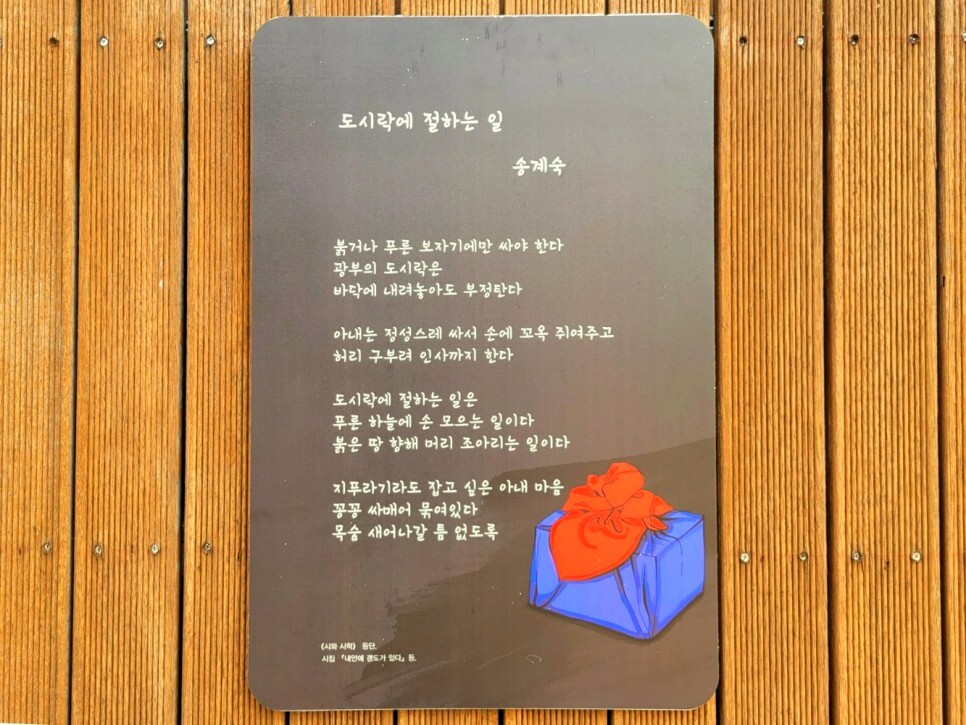 도시락에 절하는 일
송계숙
붉거나 푸른 보자기에만 싸야 한다
광부의 도시락은
바닥에 내려놓아도 부정탄다
아내는 정성스레 싸서 손에 꼬옥 쥐여주고
허리 구부려 인사까지 한다
도시락에 절하는 일은
푸른 하늘에 손 모으는 일이다
붉은 땅 향해 머리 조아리는 일이다
지푸라기라도 잡고 싶은 아내 마음
꽁꽁 싸매어 묶여있다
목숨 새어나갈 틈 없도록
《시와 시학》 등단.
시집 『내안에 갱도가 있다』 등.